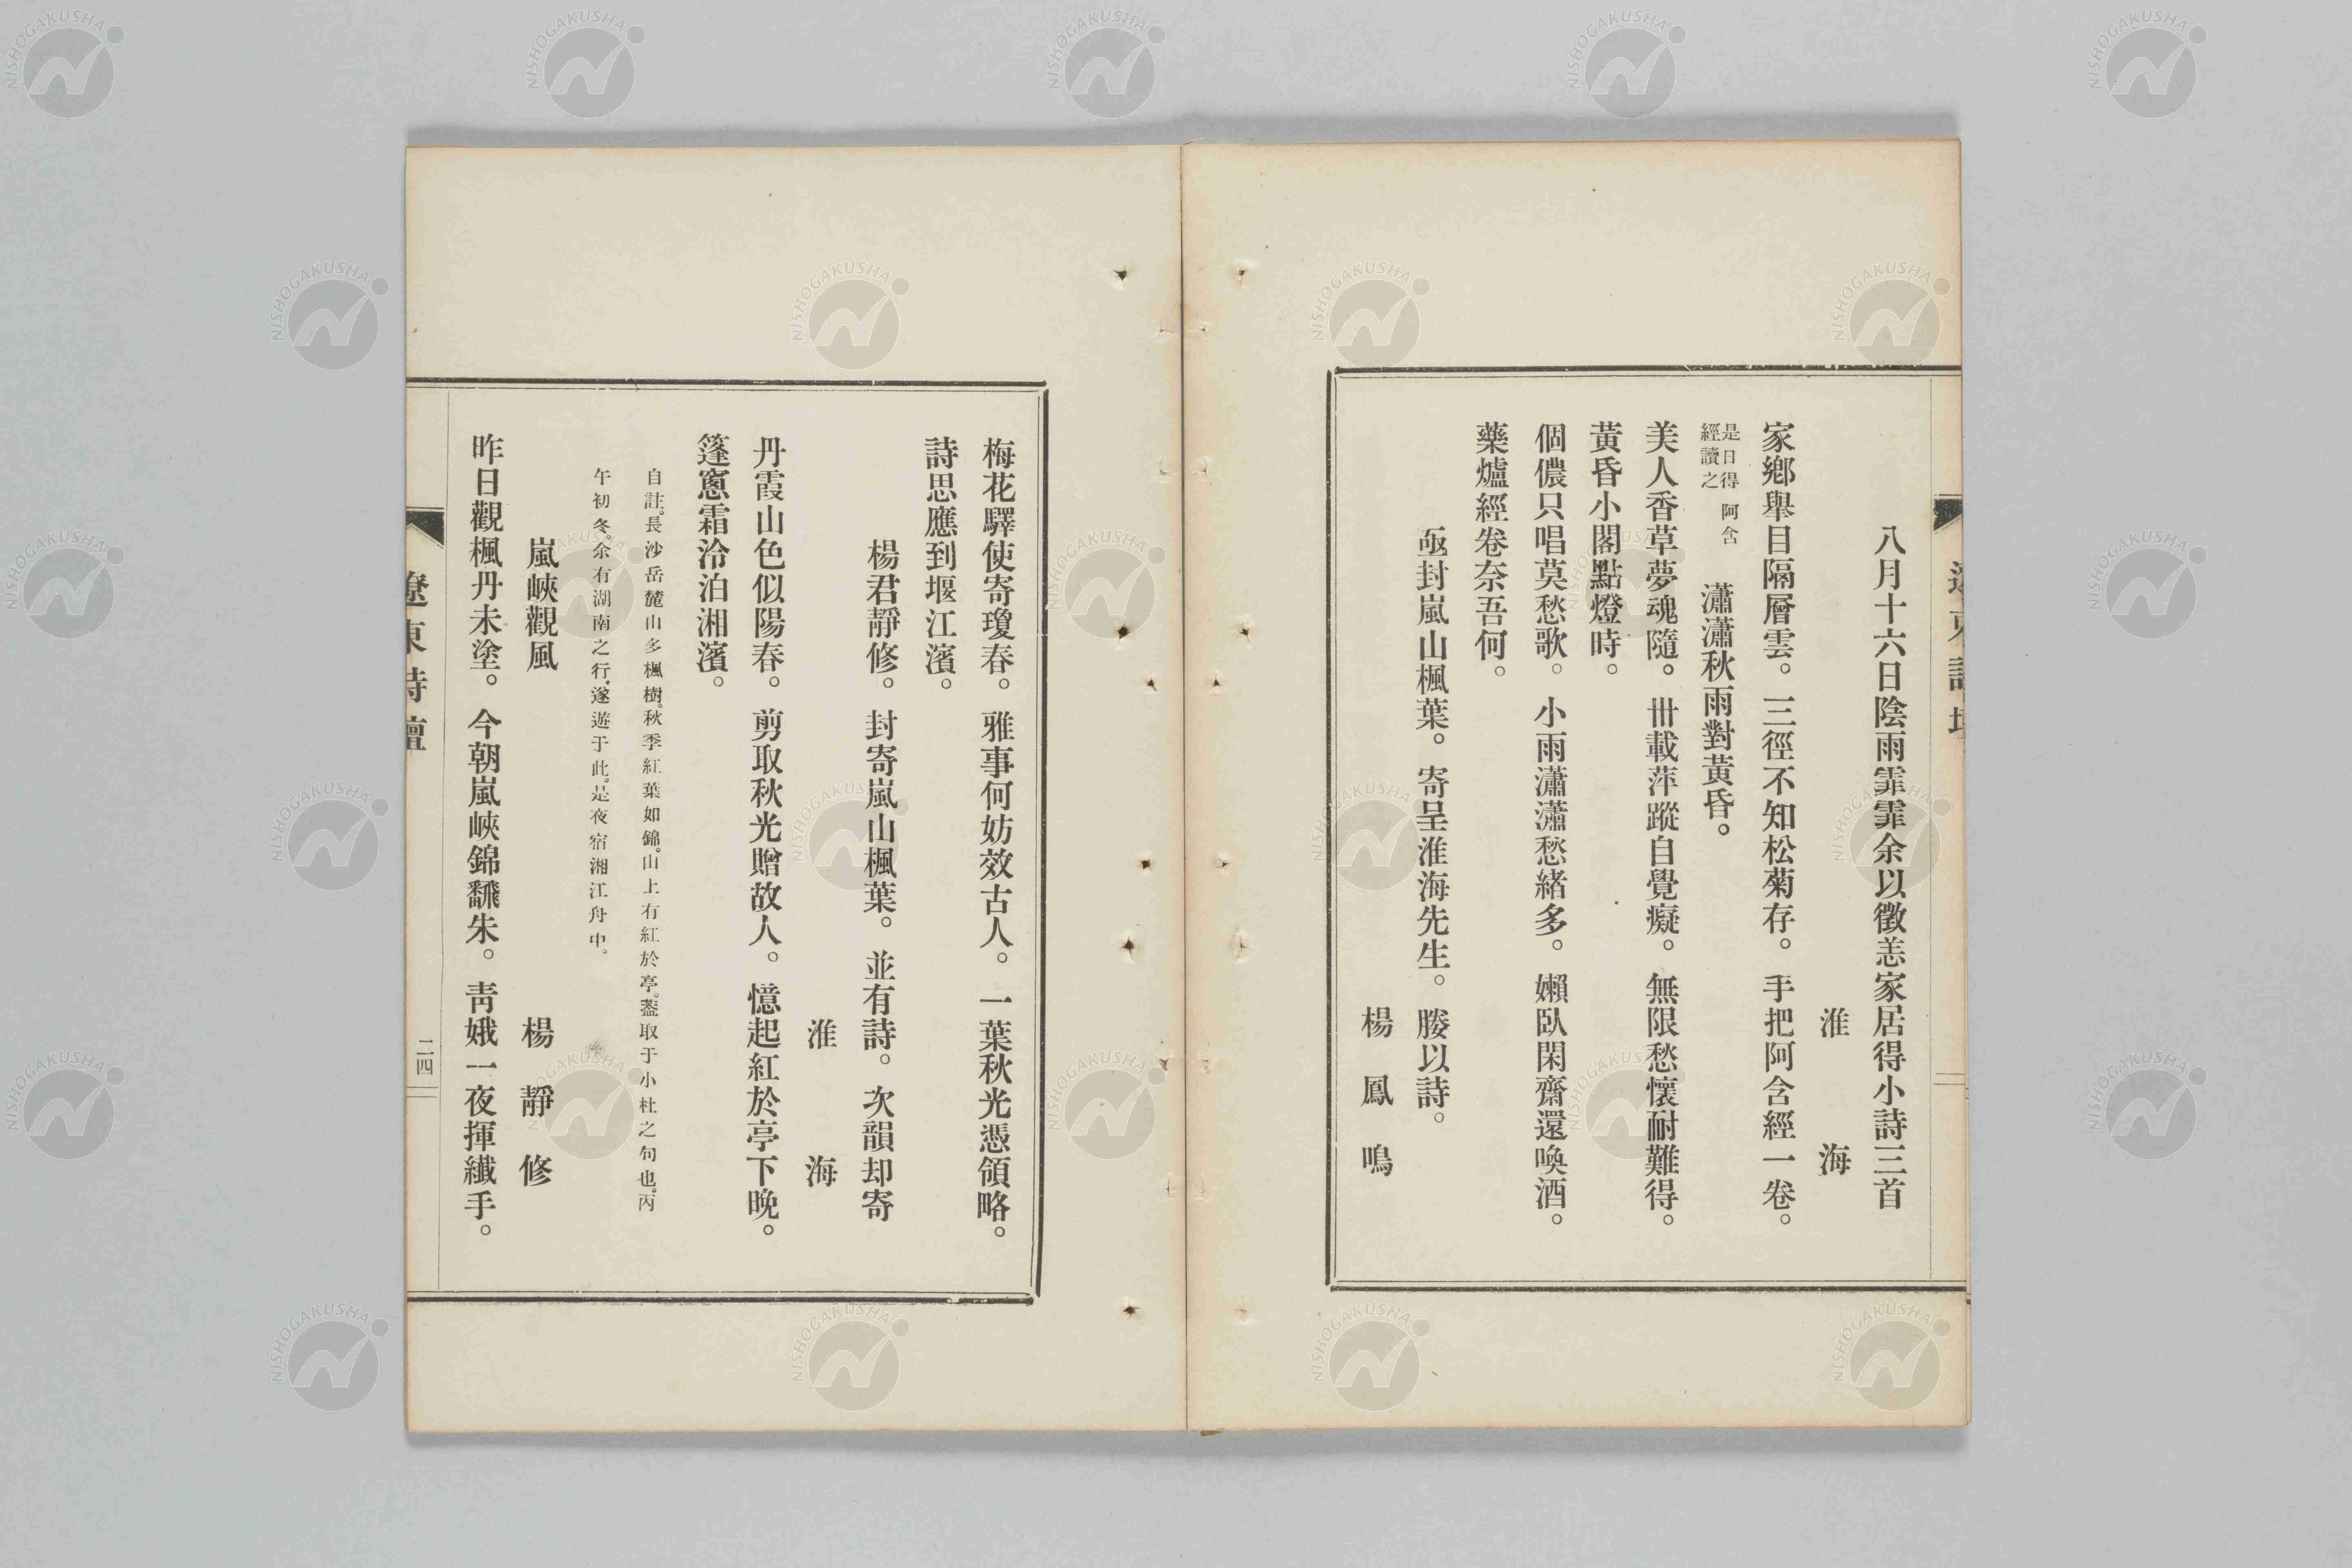 八月十六日陰雨霏霏余以徵恙家居得小詩三首
淮海
家鄕舉目隔層雲。三徑不知松菊存。手把阿含經一卷。
是日得阿含
經讀之
瀟瀟秋雨對黃昏。
美人香草夢魂隨。卅載萍蹤自覺癡。無限愁懷耐難得。
黃昏小閣點燈時。
個儂只唱莫愁歌。小雨瀟瀟愁緒多。嬾臥閑齋還喚酒。
藥爐經卷奈吾何。
亟封嵐山楓葉。寄呈淮海先生。媵以詩。
楊鳳鳴
梅花驛使寄瓊春。雅事何妨效古人。一葉秋光憑領略。
詩思應到堰江濱。
楊君靜修。封寄嵐山楓葉。並有詩。次韻却寄
淮海
丹霞山色似陽春。剪取秋光贈故人。憶起紅於亭下晚。
篷窻霜冷泊湘濱。
自註。長沙岳麓山多楓樹。秋季紅葉如錦。山上有紅於亭。蓋取于小杜之句也。丙
午初冬。余有湖南之行。遂遊于此。是夜宿湘江舟中。
嵐峽觀風
楊靜修
昨日觀楓丹未塗。今朝嵐峽錦飜朱。靑娥一夜揮纖手。
遼東詩壇
二四
NISHOGAKUSHA